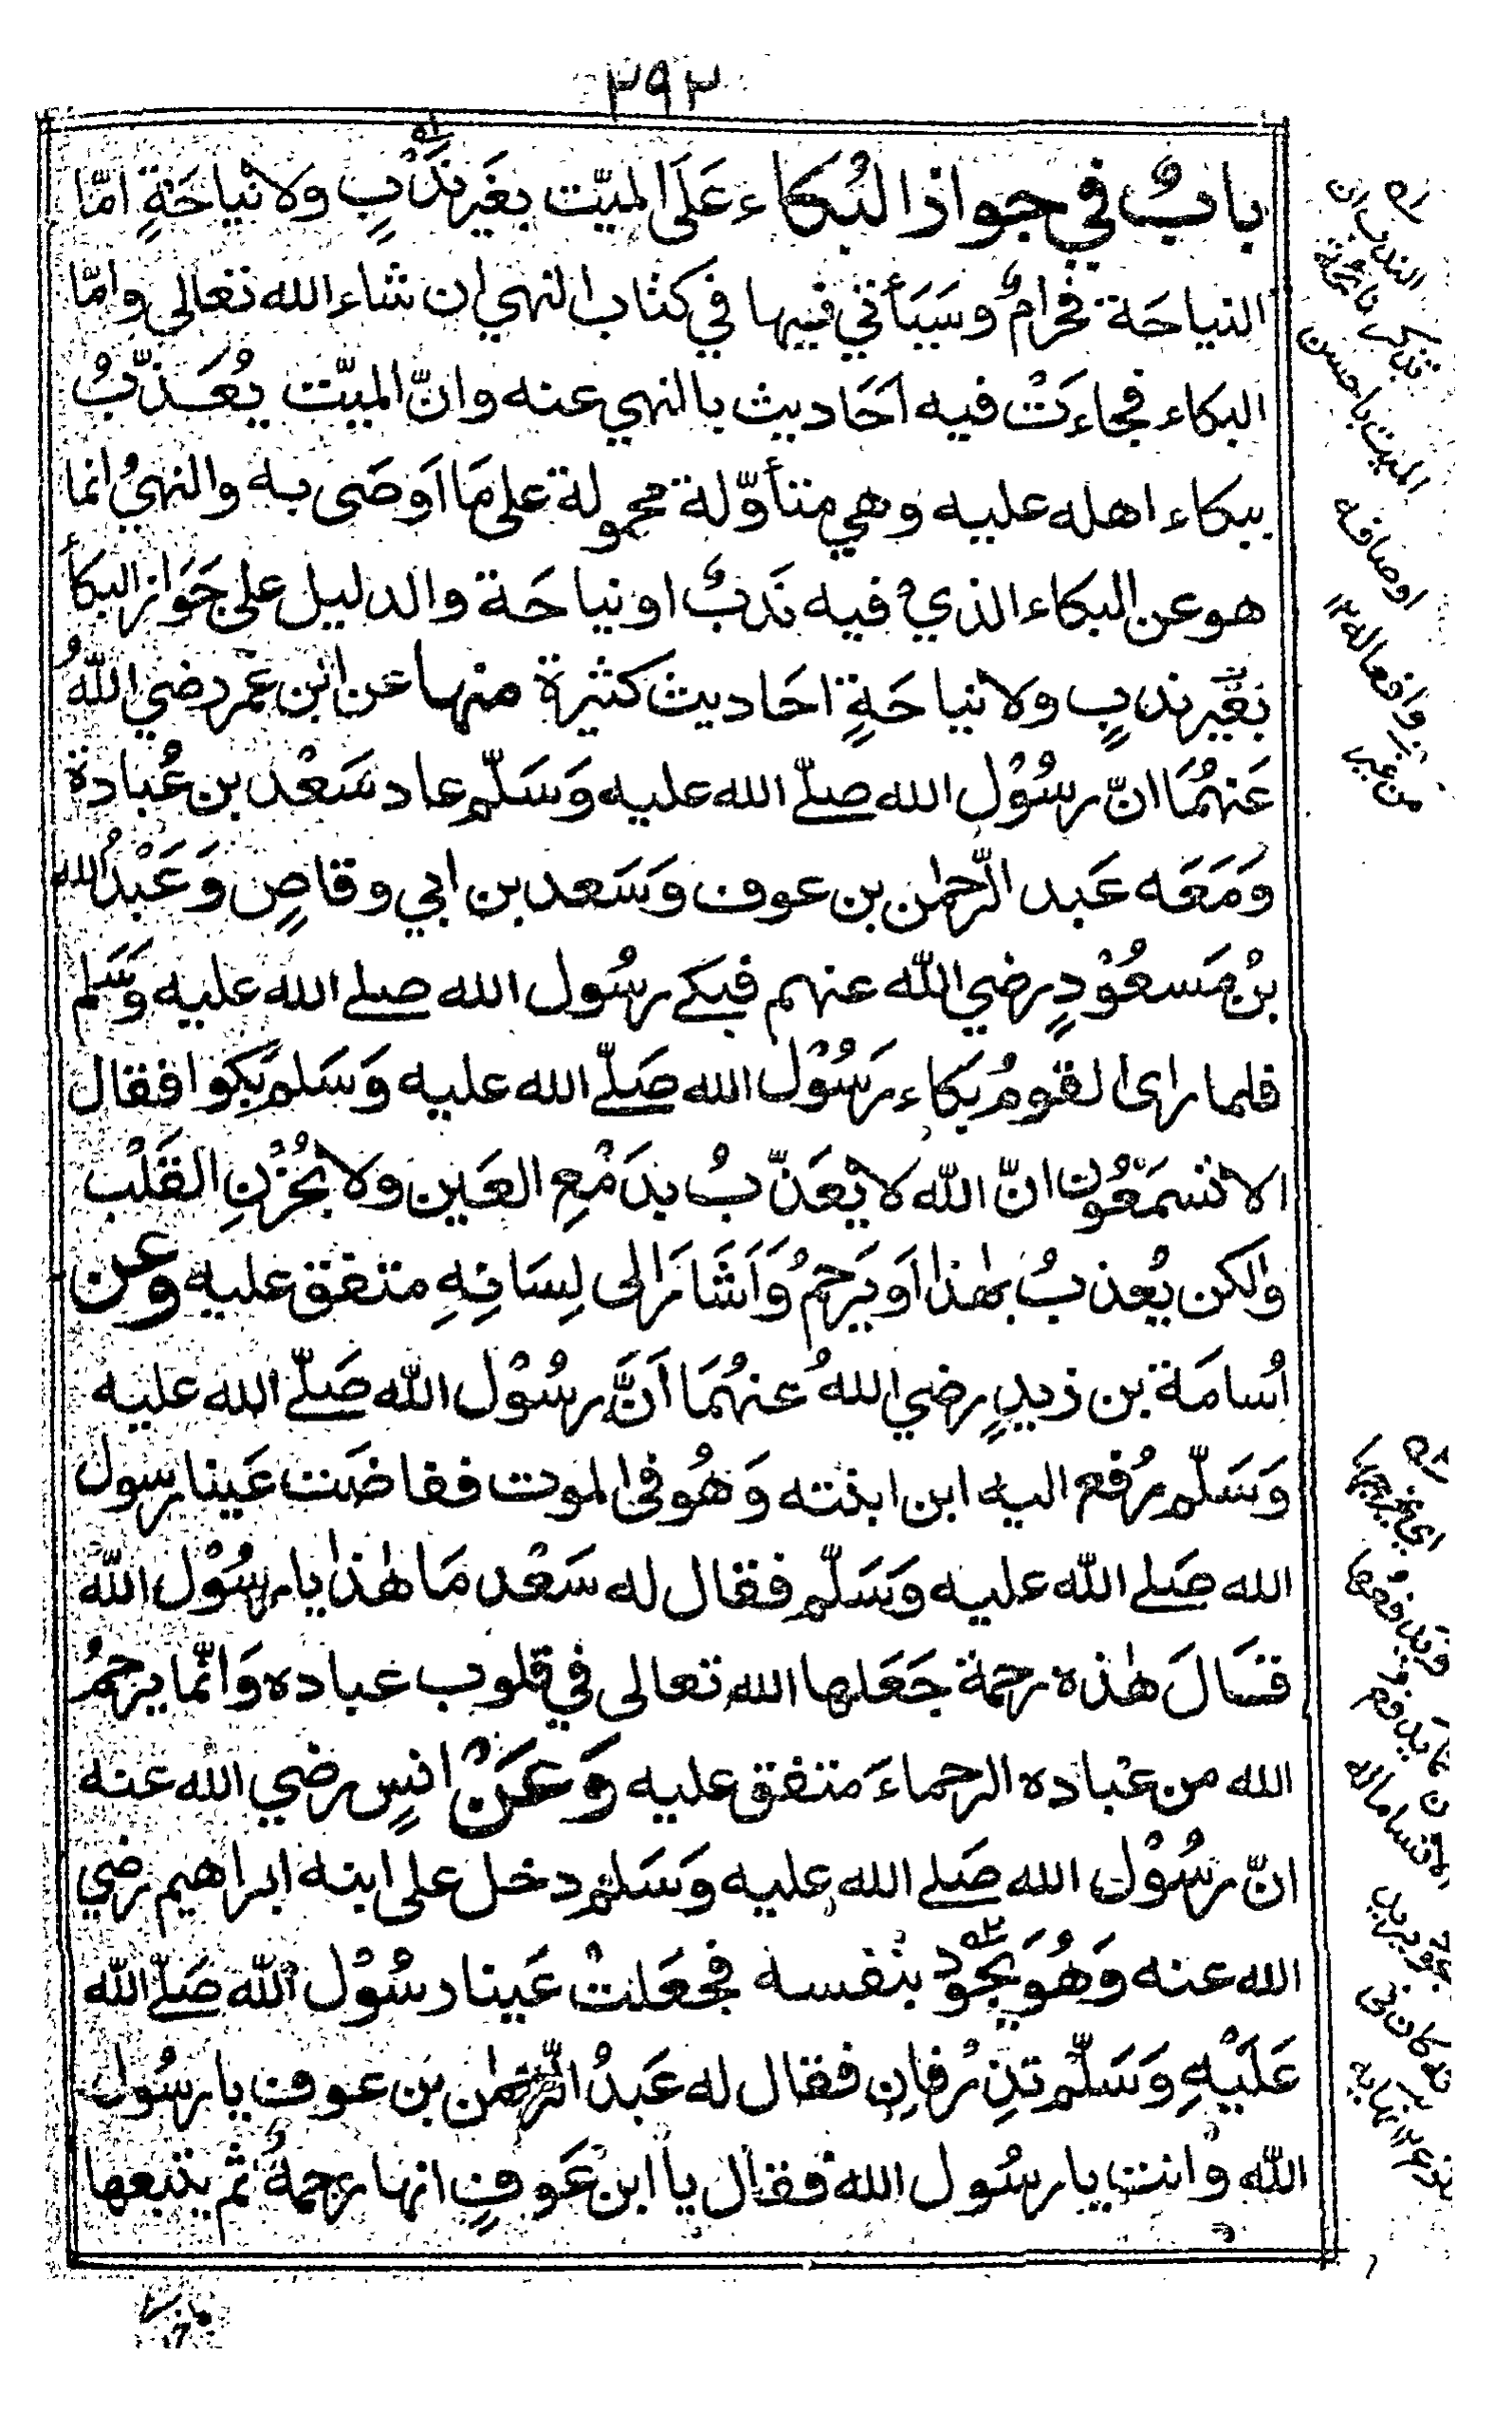 ٣٩٢
بابٌ في جواز البُكاء عَلَى الميّت بغَير نَدْبٍ ولا نياحَةٍ امّا
النياحَة فحرامٌ وسَيَأتي فيها في كتاب النهي ان شاء الله تعالى وامّا
البكاء فجاءَتْ فيه اَحَاديث بالنهي عنه وانّ الميّت يُعَذّبُ
ببكاء اهله عليه وهي متأوّلة محمولة على مَا اَوصَى به والنهيُ انما
هو عن البكاء الذيْ فيه نَدبٌ او نياحَة والدليل على جَوَاز البكأ
بغَير ندبٍ ولا نياحَةٍ احَاديث كثيرة منها عن ابن عمَر رضي اللهُ
عَنهُمَا انّ رسُوْل الله صلّے الله عليه وَسَلّم عاد سَعْد بن عُبادة
وَمَعَه عَبد الرّحمٰن بن عوف وَسَعد بن ابي وقاصٍ وَعَبْدُ الله
بنْ مَسعُوْدٍ رضي اللّه عنهم فبكے رسُول الله صلے الله عليه وَسَلم
فلما راى القومُ بَكاء رَسُوْل الله صَلّے الله عليه وَسَلم بَكوا فقال
الا تسمَعُون انّ اللّه لا يُعَذّبُ بدَمْعِ العَين ولا بحُزْنِ القَلْب
ولكن يُعذبُ بهٰذا اَو يَرحمُ وَاَشَارَ الى لِسَانِهِ متفق عليه وعن
اُسامَة بن زيدٍ رضي اللهُ عنهُمَا اَنَّ رسُوْل اللّه صَلّے الله عليه
وَسَلّم رُفع اليه ابن ابنته وَهُو فى الموت ففاضَت عَينا رسول
الله صَلے اللّه عليه وَسَلّم فقال له سَعْد مَا هٰذا يا رسُوْل اللّه
قَالَ هٰذه رحمة جَعَلها الله تعالى في قلوب عباده وَانّما يرحمُ
الله من عباده الرحماءَ متفق عليه وَعَنْ انسٍ رضي الله عنه
انّ رسُوْل الله صَلے الله عليه وَسَلم دخل على ابنه ابراهيم رضي
الله عنه وَهُوَ يجُوْد بنفسه فجعَلتْ عَينا رسُوْل اللّه صَلّے اللّه
عَلَيْهِ وَسَلّم تذِرُفانِ فقال له عَبدُ الرّحمٰن بن عوف يا رسُول
اللّه وانت يا رسُول الله فقال يا ابن عَوفٍ انها رحمةٌ ثم يتبعها
الندب ان
تذكر نائحة
الميت باحسن
اوصافه
وافعاله
من غير